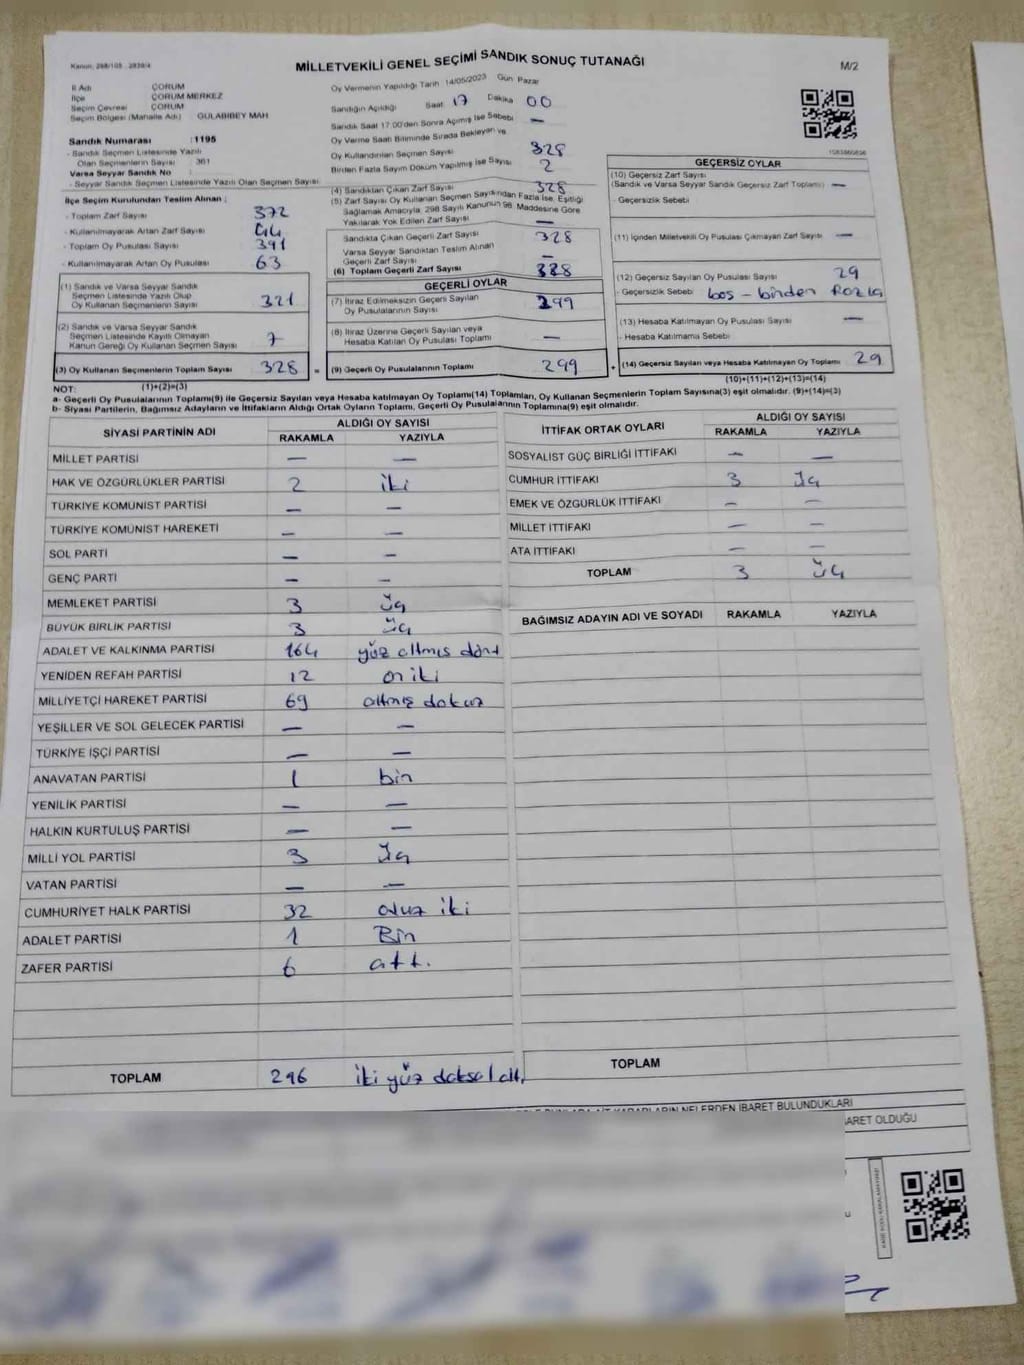 Kanun: 298/105 - 2839/4
MİLLETVEKİLİ GENEL SEÇİMİ SANDIK SONUÇ TUTANAĞI
M/2
İl Adı ÇORUM
İlçe ÇORUM MERKEZ
Seçim Çevresi ÇORUM
Seçim Bölgesi (Mahalle Adı) GULABİBEY MAH
Sandık Numarası : 1195
- Sandık Seçmen Listesinde Yazılı
Olan Seçmenlerin Sayısı : 361
Varsa Seyyar Sandık No :
- Seyyar Sandık Seçmen Listesinde Yazılı Olan Seçmen Sayısı
İlçe Seçim Kurulundan Teslim Alınan ;
- Toplam Zarf Sayısı 372
- Kullanılmayarak Artan Zarf Sayısı 44
- Toplam Oy Pusulası Sayısı 391
- Kullanılmayarak Artan Oy Pusulası 63
(1) Sandık ve Varsa Seyyar Sandık
Seçmen Listesinde Yazılı Olup
Oy Kullanan Seçmenlerin Sayısı 321
(2) Sandık ve Varsa Seyyar Sandık
Seçmen Listesinde Kayıtlı Olmayan
Kanun Gereği Oy Kullanan Seçmen Sayısı 7
(3) Oy Kullanan Seçmenlerin Toplam Sayısı 328 =
(1)+(2)=(3)
Oy Vermenin Yapıldığı Tarih 14/05/2023 Gün Pazar
Sandığın Açıldığı Saat 17 Dakika 00
Sandık Saat 17:00'den Sonra Açılmış İse Sebebi —
Oy Verme Saati Bitiminde Sırada Bekleyen ve
Oy Kullandırılan Seçmen Sayısı 328
Birden Fazla Sayım Döküm Yapılmış İse Sayısı 2
(4) Sandıktan Çıkan Zarf Sayısı 328
(5) Zarf Sayısı Oy Kullanan Seçmen Sayısından Fazla İse, Eşitliği
Sağlamak Amacıyla, 298 Sayılı Kanunun 98. Maddesine Göre
Yakılarak Yok Edilen Zarf Sayısı —
Sandıkta Çıkan Geçerli Zarf Sayısı 328
Varsa Seyyar Sandıktan Teslim Alınan
Geçerli Zarf Sayısı —
(6) Toplam Geçerli Zarf Sayısı 328
GEÇERLİ OYLAR
(7) İtiraz Edilmeksizin Geçerli Sayılan
Oy Pusulalarının Sayısı 299
(8) İtiraz Üzerine Geçerli Sayılan veya
Hesaba Katılan Oy Pusulası Toplamı —
(9) Geçerli Oy Pusulalarının Toplamı 299 +
GEÇERSİZ OYLAR
(10) Geçersiz Zarf Sayısı
(Sandık ve Varsa Seyyar Sandık Geçersiz Zarf Toplamı) —
- Geçersizlik Sebebi
(11) İçinden Milletvekili Oy Pusulası Çıkmayan Zarf Sayısı —
(12) Geçersiz Sayılan Oy Pusulası Sayısı 29
- Geçersizlik Sebebi boş - birden fazla
(13) Hesaba Katılmayan Oy Pusulası Sayısı —
- Hesaba Katılmama Sebebi
(14) Geçersiz Sayılan veya Hesaba Katılmayan Oy Toplamı 29
(10)+(11)+(12)+(13)=(14)
NOT:
a- Geçerli Oy Pusulalarının Toplamı(9) ile Geçersiz Sayılan veya Hesaba katılmayan Oy Toplamı(14) Toplamları, Oy Kullanan Seçmenlerin Toplam Sayısına(3) eşit olmalıdır. (9)+(14)=(3)
b- Siyasi Partilerin, Bağımsız Adayların ve İttifakların Aldığı Ortak Oyların Toplamı, Geçerli Oy Pusulalarının Toplamına(9) eşit olmalıdır.
SİYASİ PARTİNİN ADI ALDIĞI OY SAYISI
RAKAMLA YAZIYLA
MİLLET PARTİSİ — —
HAK VE ÖZGÜRLÜKLER PARTİSİ 2 iki
TÜRKİYE KOMÜNİST PARTİSİ — —
TÜRKİYE KOMÜNİST HAREKETİ — —
SOL PARTİ — —
GENÇ PARTİ — —
MEMLEKET PARTİSİ 3 üç
BÜYÜK BİRLİK PARTİSİ 3 üç
ADALET VE KALKINMA PARTİSİ 164 yüz altmış dört
YENİDEN REFAH PARTİSİ 12 on iki
MİLLİYETÇİ HAREKET PARTİSİ 69 altmış dokuz
YEŞİLLER VE SOL GELECEK PARTİSİ — —
TÜRKİYE İŞÇİ PARTİSİ — —
ANAVATAN PARTİSİ 1 bir
YENİLİK PARTİSİ — —
HALKIN KURTULUŞ PARTİSİ — —
MİLLİ YOL PARTİSİ 3 üç
VATAN PARTİSİ — —
CUMHURİYET HALK PARTİSİ 32 otuz iki
ADALET PARTİSİ 1 Bir
ZAFER PARTİSİ 6 altı
TOPLAM 296 iki yüz doksan altı
İTTİFAK ORTAK OYLARI ALDIĞI OY SAYISI
RAKAMLA YAZIYLA
SOSYALİST GÜÇ BİRLİĞİ İTTİFAKI — —
CUMHUR İTTİFAKI 3 üç
EMEK VE ÖZGÜRLÜK İTTİFAKI — —
MİLLET İTTİFAKI — —
ATA İTTİFAKI — —
TOPLAM 3 üç
BAĞIMSIZ ADAYIN ADI VE SOYADI RAKAMLA YAZIYLA
TOPLAM
KARARLARIN NELERDEN İBARET BULUNDUKLARI
OLDUĞU